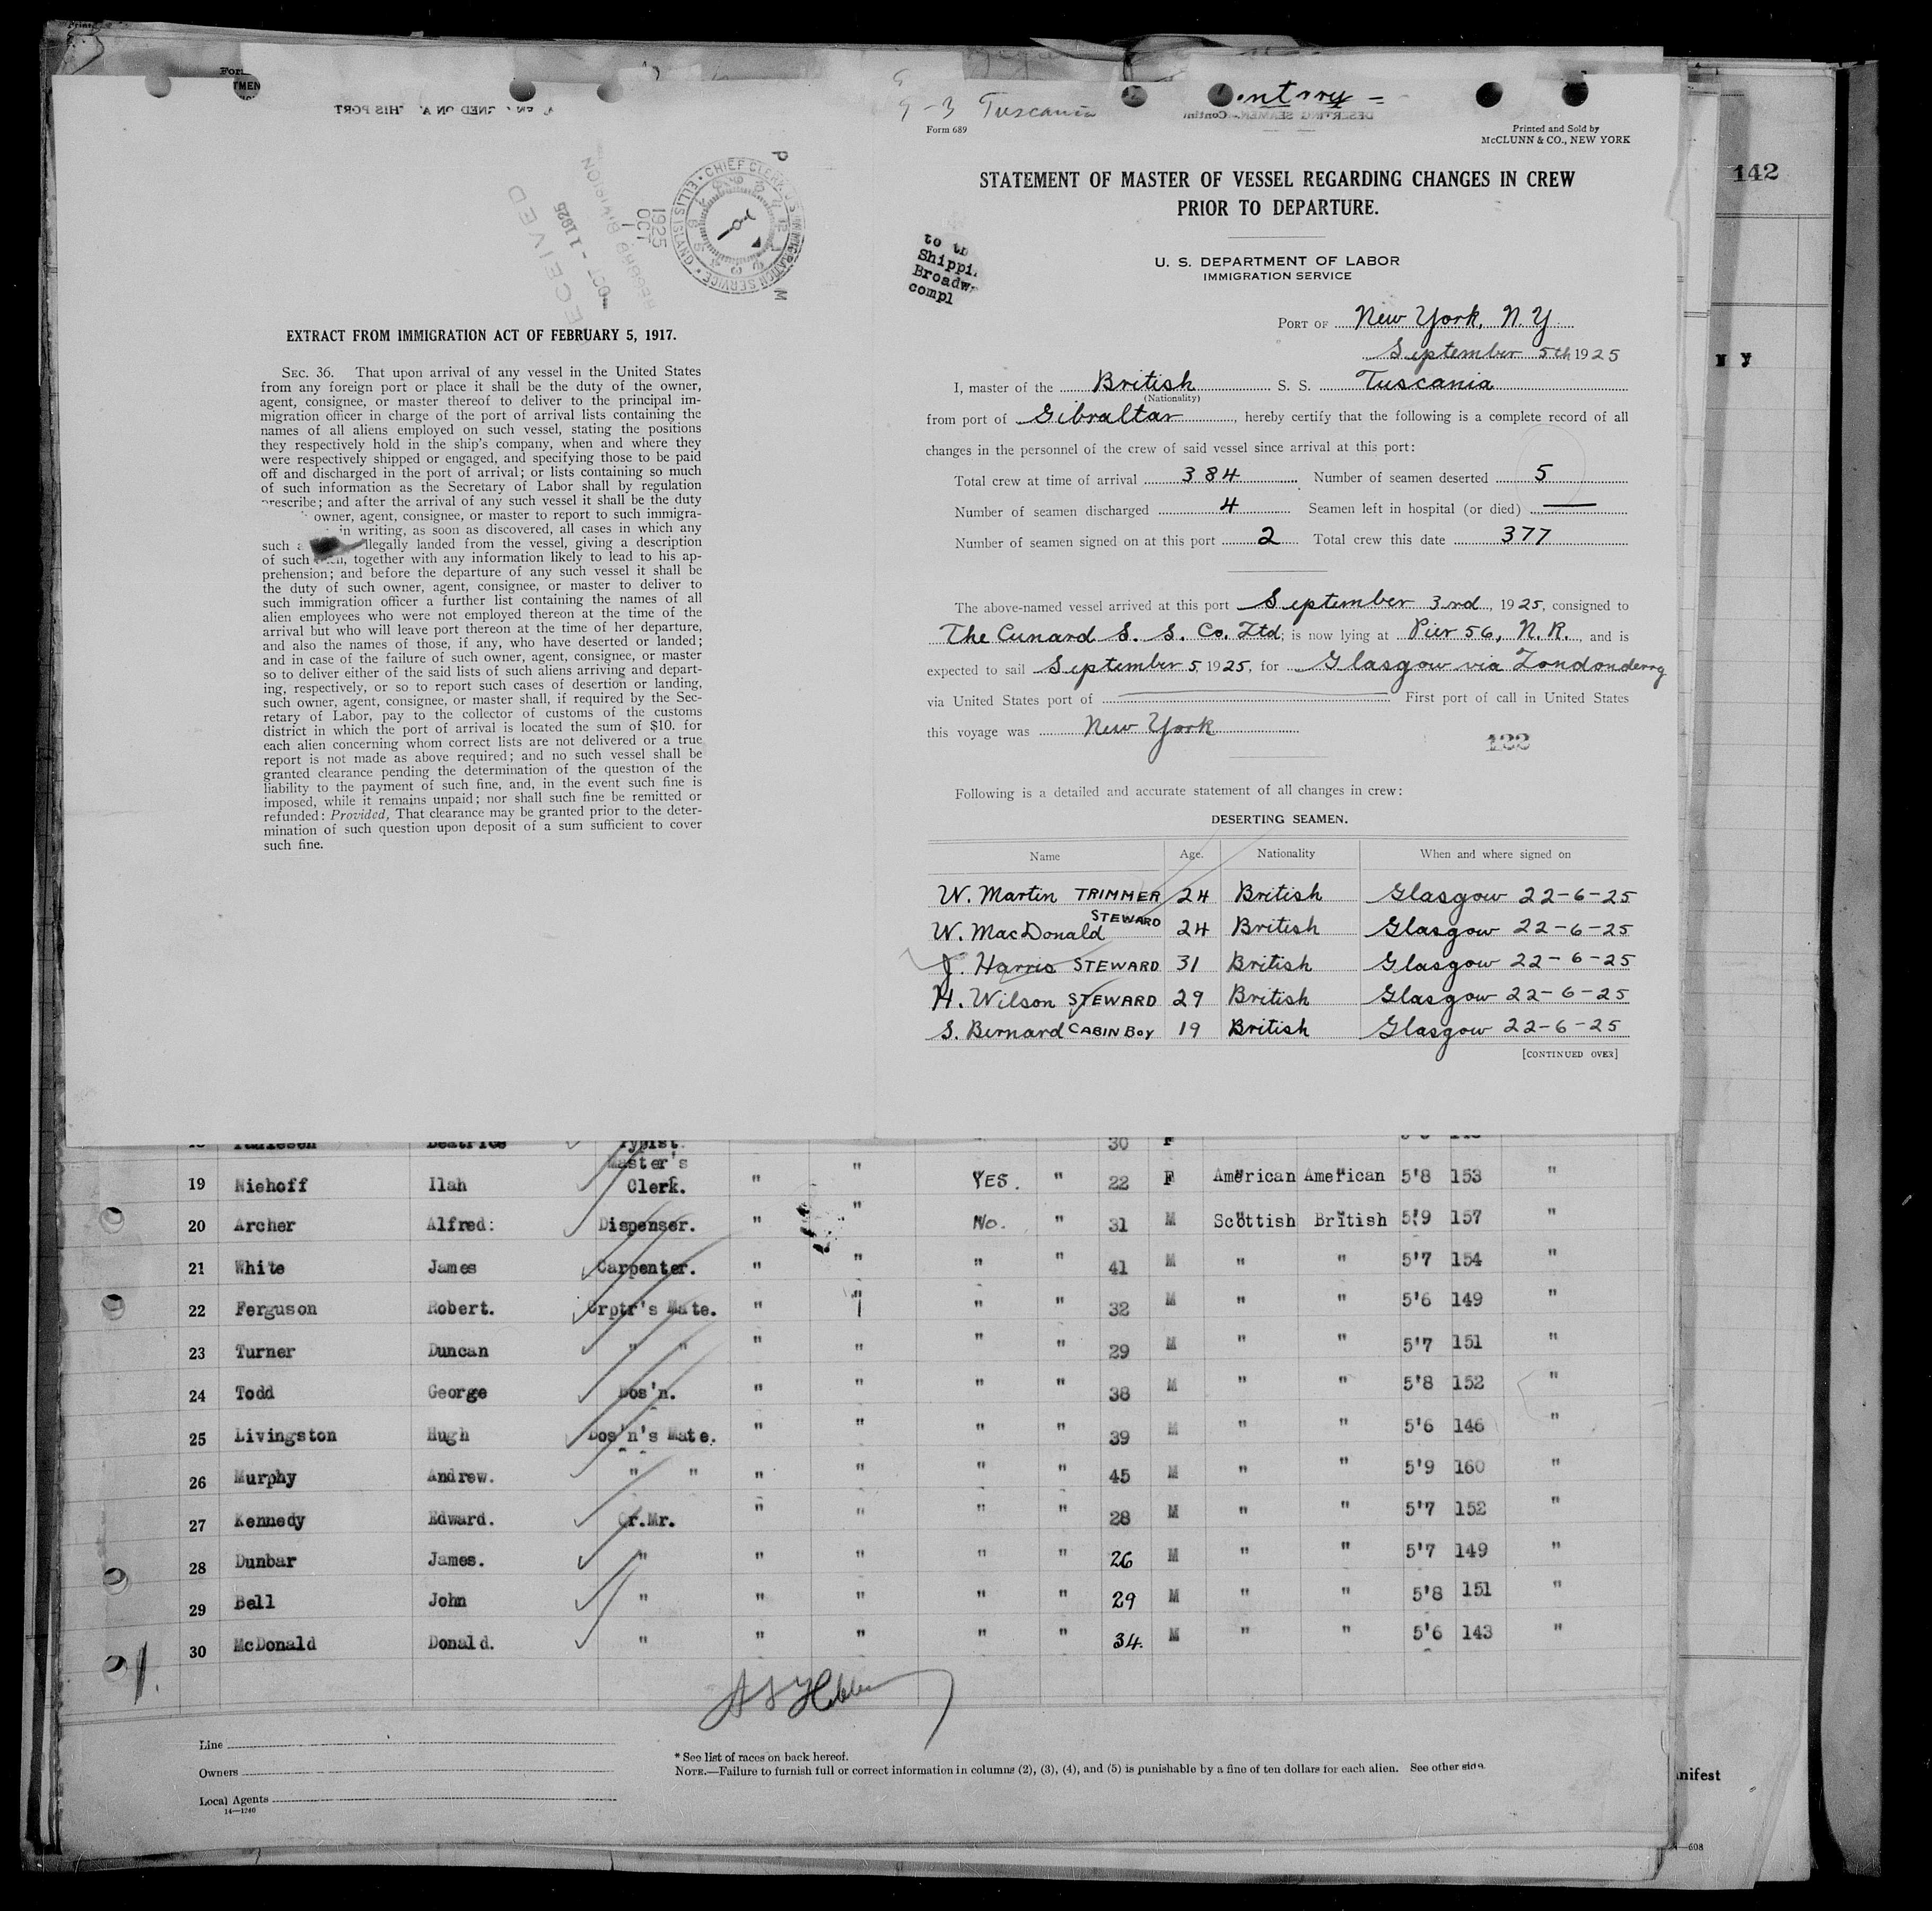 142
9-3 Tuscania
Form 689
Printed and Sold by
McCLUNN & CO., NEW YORK
STATEMENT OF MASTER OF VESSEL REGARDING CHANGES IN CREW
PRIOR TO DEPARTURE.
U. S. DEPARTMENT OF LABOR
IMMIGRATION SERVICE
PORT OF New York, N.Y.
September 5th 1925
I, master of the British S. S. Tuscania
(Nationality)
from port of Gibraltar, hereby certify that the following is a complete record of all
changes in the personnel of the crew of said vessel since arrival at this port:
Total crew at time of arrival 384 Number of seamen deserted 5
Number of seamen discharged 4 Seamen left in hospital (or died) —
Number of seamen signed on at this port 2 Total crew this date 377
The above-named vessel arrived at this port September 3rd, 1925, consigned to
The Cunard S. S. Co. Ltd; is now lying at Pier 56, N.R., and is
expected to sail September 5 1925, for Glasgow via Londonderry
via United States port of First port of call in United States
this voyage was New York
Following is a detailed and accurate statement of all changes in crew:
DESERTING SEAMEN.
Name Age. Nationality When and where signed on
W. Martin TRIMMER 24 British Glasgow 22-6-25
W. MacDonald STEWARD 24 British Glasgow 22-6-25
J. Harris STEWARD 31 British Glasgow 22-6-25
H. Wilson STEWARD 29 British Glasgow 22-6-25
S. Bernard CABIN BOY 19 British Glasgow 22-6-25
[CONTINUED OVER]
to th
Shippi
Broadw
compl
RECEIVED
OCT - 1 1925
CHIEF CLERK U.S. IMMIGRATION SERVICE • ELLIS ISLAND •
1925
OCT
1
P M
EXTRACT FROM IMMIGRATION ACT OF FEBRUARY 5, 1917.
SEC. 36. That upon arrival of any vessel in the United States
from any foreign port or place it shall be the duty of the owner,
agent, consignee, or master thereof to deliver to the principal im-
migration officer in charge of the port of arrival lists containing the
names of all aliens employed on such vessel, stating the positions
they respectively hold in the ship's company, when and where they
were respectively shipped or engaged, and specifying those to be paid
off and discharged in the port of arrival; or lists containing so much
of such information as the Secretary of Labor shall by regulation
prescribe; and after the arrival of any such vessel it shall be the duty
owner, agent, consignee, or master to report to such immigra-
in writing, as soon as discovered, all cases in which any
such a llegally landed from the vessel, giving a description
of such , together with any information likely to lead to his ap-
prehension; and before the departure of any such vessel it shall be
the duty of such owner, agent, consignee, or master to deliver to
such immigration officer a further list containing the names of all
alien employees who were not employed thereon at the time of the
arrival but who will leave port thereon at the time of her departure,
and also the names of those, if any, who have deserted or landed;
and in case of the failure of such owner, agent, consignee, or master
so to deliver either of the said lists of such aliens arriving and depart-
ing, respectively, or so to report such cases of desertion or landing,
such owner, agent, consignee, or master shall, if required by the Sec-
retary of Labor, pay to the collector of customs of the customs
district in which the port of arrival is located the sum of $10. for
each alien concerning whom correct lists are not delivered or a true
report is not made as above required; and no such vessel shall be
granted clearance pending the determination of the question of the
liability to the payment of such fine, and, in the event such fine is
imposed, while it remains unpaid; nor shall such fine be remitted or
refunded: Provided, That clearance may be granted prior to the deter-
mination of such question upon deposit of a sum sufficient to cover
such fine.
Beatrice Typist. 30 F
19 Niehoff Ilah Master's Clerk. " " YES. " 22 F American American 5'8 153 "
20 Archer Alfred: Dispenser. " " No. " 31 M Scottish British 5'9 157 "
21 White James Carpenter. " " " " 41 M " " 5'7 154 "
22 Ferguson Robert. Crptr's Mate. " " " " 32 M " " 5'6 149 "
23 Turner Duncan " " " " " " 29 M " " 5'7 151 "
24 Todd George Bos'n. " " " " 38 M " " 5'8 152 "
25 Livingston Hugh Bos'n's Mate. " " " " 39 M " " 5'6 146 "
26 Murphy Andrew. " " " " " " 45 M " " 5'9 160 "
27 Kennedy Edward. Qr.Mr. " " " " 28 M " " 5'7 152 "
28 Dunbar James. " " " " " 26 M " " 5'7 149 "
29 Bell John " " " " " 29 M " " 5'8 151 "
30 McDonald Donald. " " " " " 34. M " " 5'6 143 "
Line
Owners
Local Agents
14—1240
* See list of races on back hereof.
NOTE.—Failure to furnish full or correct information in columns (2), (3), (4), and (5) is punishable by a fine of ten dollars for each alien. See other side
nifest